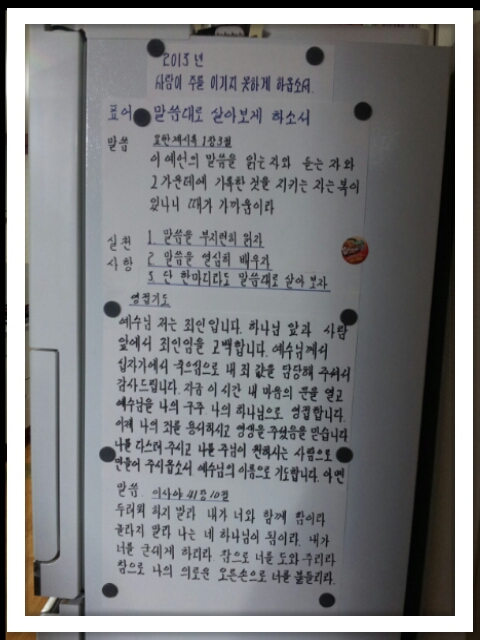 2013년
사람이 주를 이기지 못하게 하옵소서.
표어 말씀대로 살아보게 하소서
말씀 요한계시록 1장3절
이 예언의 말씀을 읽는자와 듣는 자와
그 가운데에 기록한 것을 지키는 자는 복이
있나니 때가 가까움이라
실천 1. 말씀을 부지런히 읽자
사항 2. 말씀을 열심히 배우자
3. 단 한마디라도 말씀대로 살아 보자
영접기도
예수님 저는 죄인입니다. 하나님 앞과 사람
앞에서 죄인임을 고백합니다. 예수님께서
십자가에서 죽으심으로 내 죄 값을 담당해 주셔서
감사드립니다. 지금 이 시간 내 마음의 문을 열고
예수님을 나의 구주 나의 하나님으로 영접합니다.
이제 나의 죄를 용서하시고 영생을 주셨음을 믿습니다
나를 다스려 주시고 나를 주님이 원하시는 사람으로
만들어 주시옵소서 예수님의 이름으로 기도합니다. 아멘
말씀. 이사야 41장 10절
두려워 하지 말라 내가 너와 함께 함이라
놀라지 말라 나는 네 하나님이 됨이라. 내가
너를 굳세게 하리라 참으로 너를 도와 주리라
참으로 나의 의로운 오른손으로 너를 붙들리라.